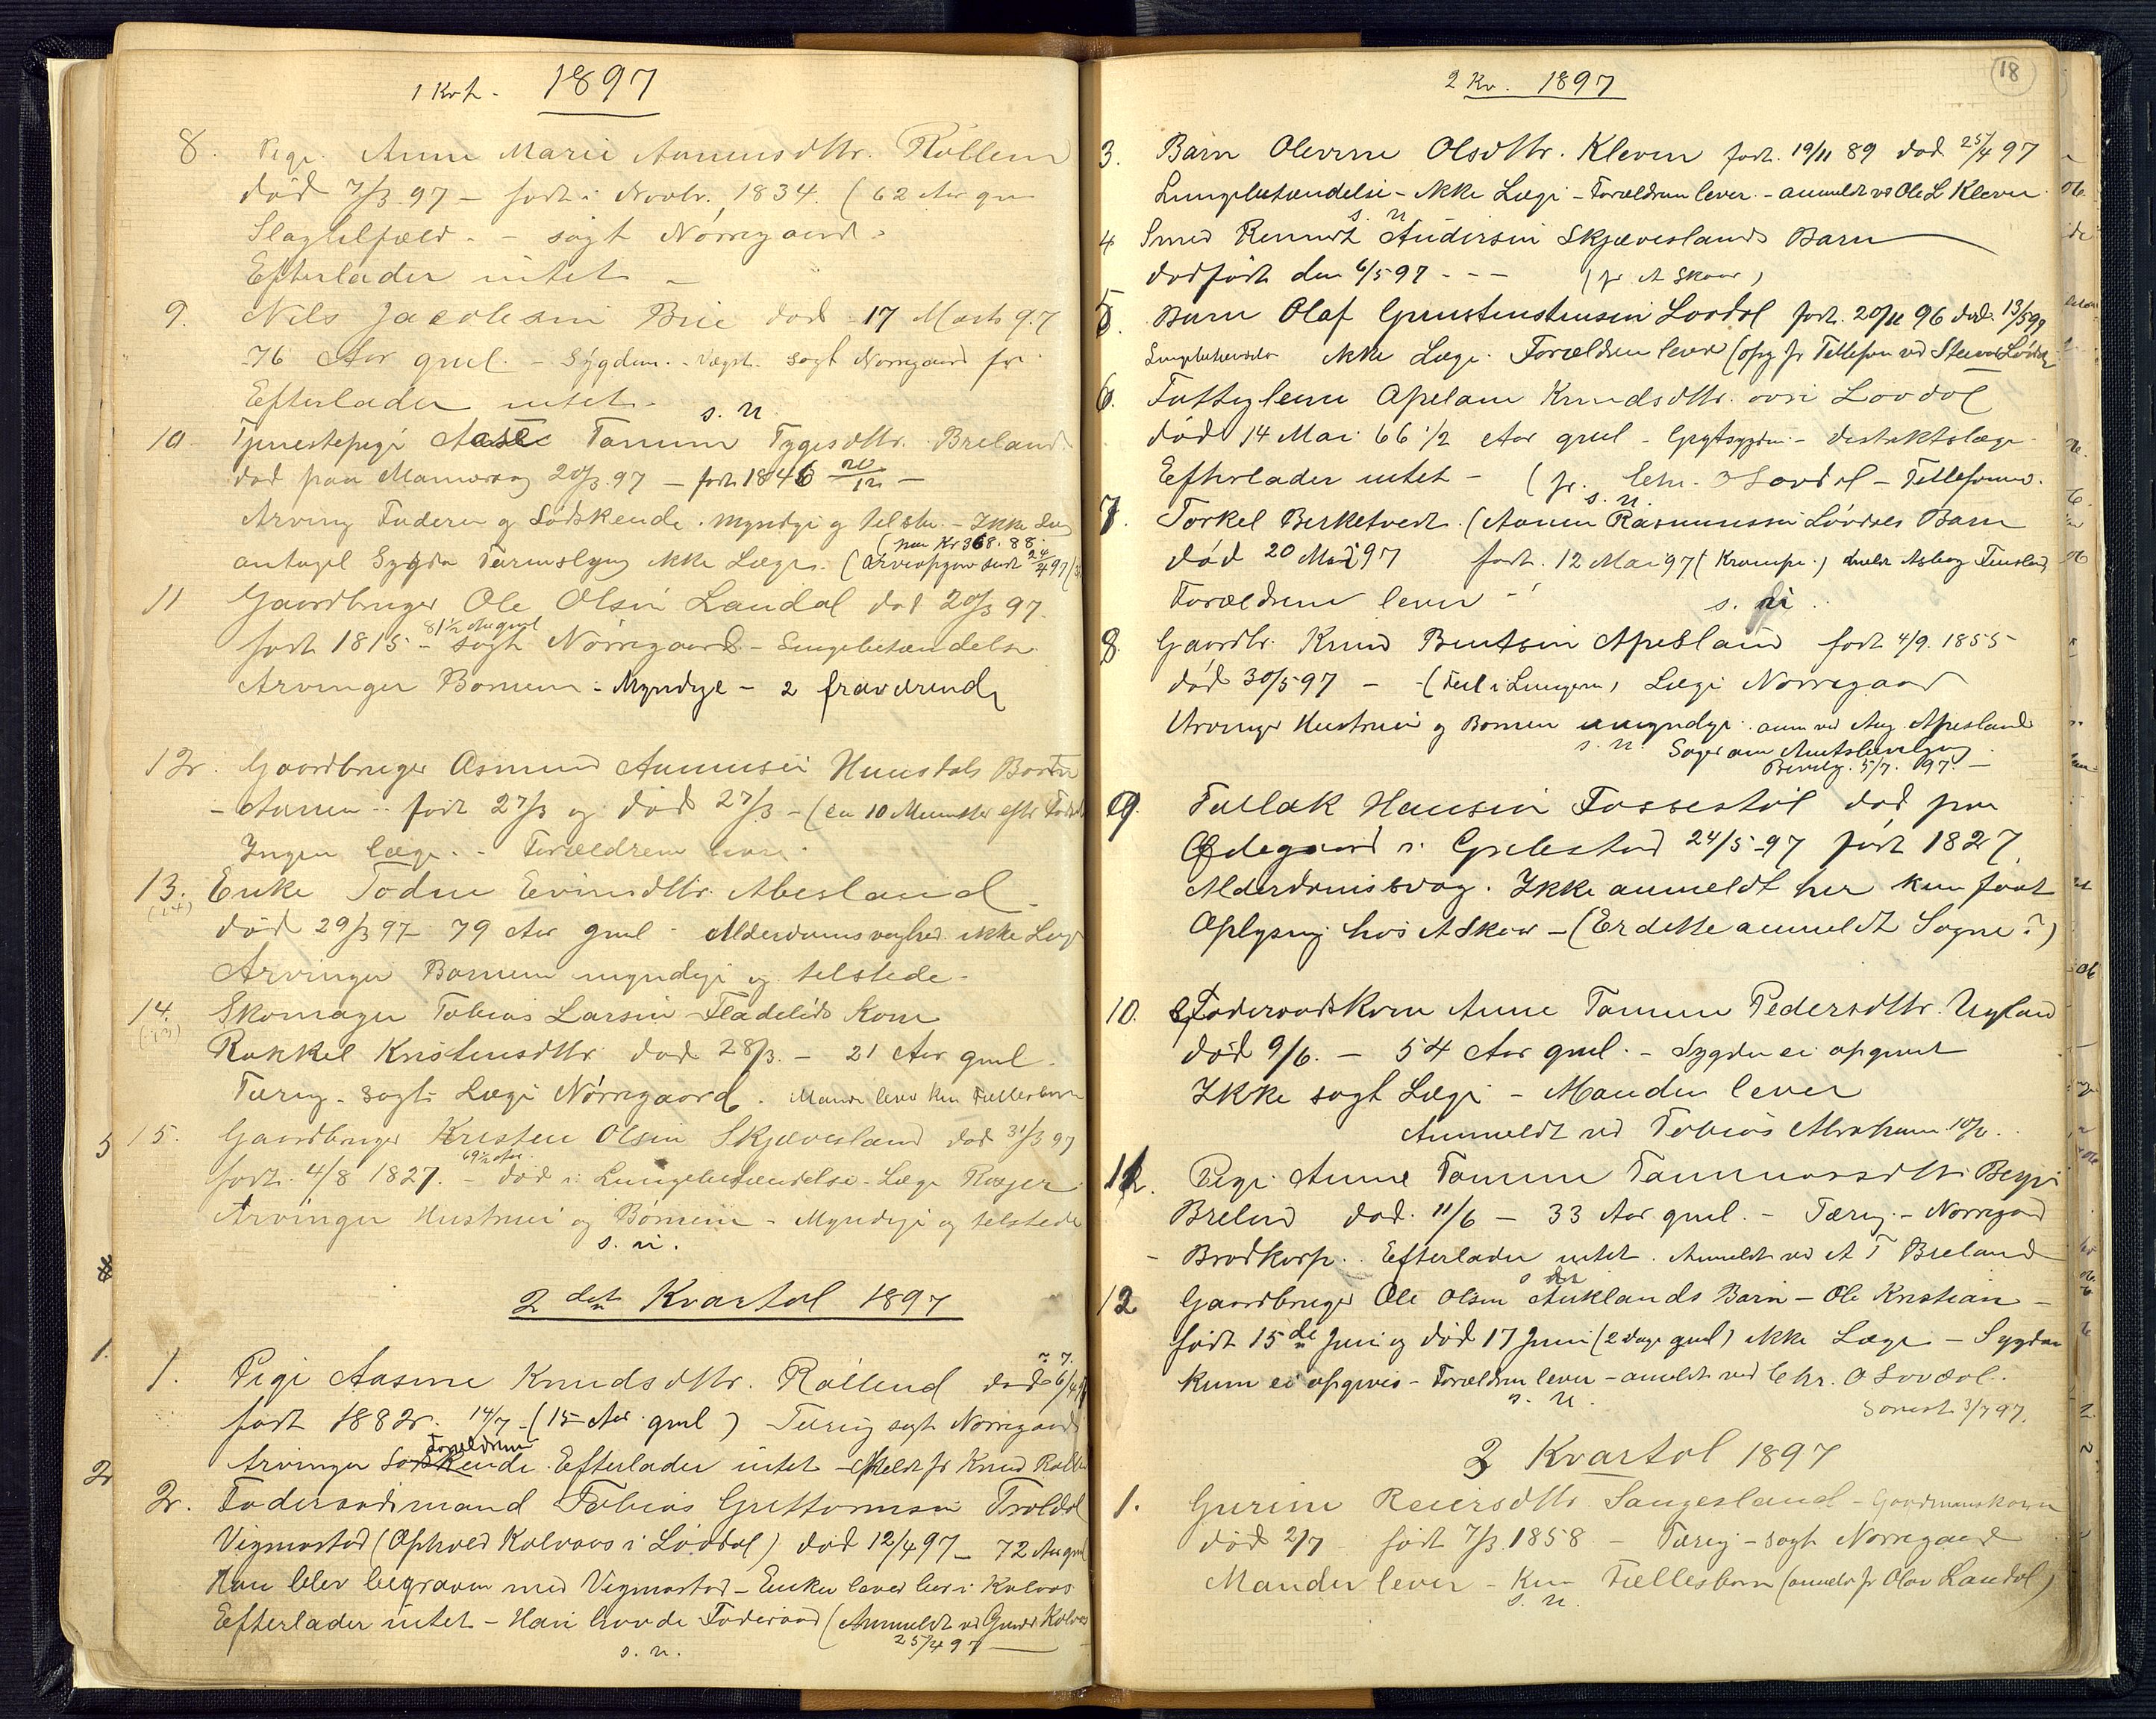 1 Kvt. 1897
8. Pige Anne Marie Aanensdttr. Röllend
död 7/3 97 – født i Novbr. 1834. (62 Aar gm
Slagtilfæld. – sögt Nørregaard.
Efterlader intet –
9. Nils Jacobsen Brie död 17 Marts 97
76 Aar gml. – Sygdom. sogt Nørregaard
Efterlader intet. s. n.
10 Tjenestepige Aase Tomine Tygesdttr. Breland
död paa 20/3 97 – født 1846 20/12 –
Arving Faderen og Sødskende. Myndige og tilste. – Ikke Læg
(paa Kr 368. 88.
antagel Sygdom ikke Læge. (Arveopgave sendt 24/4 97)
11 Gaardbruger Ole Olsen Landal död 20/3 97.
81½ Aar gml
født 1815 – sögt Nørregaard – Lungebetændelse
Arvinger Børnene – Myndige – 2 fraværende
12. Gaardbruger Asmund Aanensen Hunsdals Barn
– Aanen – født 27/3 og död 27/3 – (ca 10 Minutter efter Fødsel
Ingen læge. – Forældrene lever.
13. Enke Todne Eivindsdttr. Abesland
(14)
död 29/3 97 79 Aar gml – Alderdomssvaghed ikke Læge
Arvinger Børnene myndige og tilstede.
14. Skomager Tobias Larsen Fladelids Kone
(13)
Rakkel Kristensdttr död 28/3. – 21 Aar gml.
Tæring – sögt Læge Nørregaard. Manden lever Kun Fællesbørn
5 15. Gaardbruger Kristen Olsen Skjævesland död 31/3 97
69½ Aar
født. 4/8 1827. – död i Lungebetændelse – Læge
Arvinger Hustrue og Børnene – Myndige og tilstede
s. n.
2det Kvartal 1897
1. 1. Pige Aasine Knudsdttr. Röllend död 6/4 97
født 1882. 14/7 – (15 Aar gml) Tæring sögt Nørregaard
Forældrene
Arvinger Sødskende. Efterlader intet – Meldt fr Knud Röllend
2 2. Føderaadsmand Tobias Guttormsen Troldal
Vigmostad (Ophold Kolvaas i Løvdal) död 12/4 97 – 72 Aar gml
Han blev begraven med Vigmostad – Enken lever her i Kolvaas
Efterlader intet – Han havde Føderaad (Anmeldt ved Kolvaas
25/4 97
s. n.
18
2 Kv. 1897
3. Barn Olevine Olsdttr. Kleven født. 19/11 89 död 25/4 97
Lungebetændelse – ikke Læge – Forældrene lever. – anmeldt ved Ole L Kleven
s. n
4 Smed Andersen Skjæveslands Barn
dødfødt den 6/5 97 – – – (fr A Skaar)
5. Barn Olaf Løvdal født. 20/11 96 död. 13/5 97
Lungebetændelse ikke Læge. Forældrene lever (opg fr Tellefsen ved Løvdal
6. Fattiglem Apelone Knudsdttr. övre Løvdal
död 14 Mai 66 1/2 Aar gml – – Distriktslæge –
Efterlader intet – (fr. Chr. O Løvdal – Tellefsen.
s. n.
7. Torkel Birketvedt. (Aanen Rasmussen Løvdals Barn
död 20 Mai 97 født. 12 Mai 97 (Krampe.) meldt
Forældrene lever – s. n.
8. Gaardbr. Knud Bentsen Apesland født 4/9. 1855
död 30/5 97 – – (Feil i Lungerne) Læge Nørregaard
Arvinger Hustrue og Børnene umyndige. anm ved Aug. Apesland
s. n. Søger om Amtsbevilgning
Bevilg. 5/7. 97. –
9. Tallak Hansen Fossestøl död paa
Ødegaard i Grebestad 24/5 – 97 født 1827.
Alderdomssvag. Ikke anmeldt her kun faat
Oplysning hos A Skaar – (Er dette anmeldt Sogne?)
10. Føderaadskone Anne Tomine Pedersdttr. Ugland
död 9/6. – 54 Aar gml. – Sygdom ei opgivet
Ikke sögt Læge – Manden lever
Anmeldt ved Tobias Abraham 10/6.
11. Pige Anne Tomine
Breland död. 11/6 – 33 Aar gml. – Tæring – Nørregaard
– Brodkorp. Efterlader intet. Anmeldt ved A T Breland
12 Gaardbruger Ole Olsen Auklands Barn – Ole Kristian –
født 15de Juni og död 17 Juni (2 dage gml) ikke Læge – Sygdom
kun ei opgives – Forældrene lever – anmeldt ved Chr. O Løvdal.
s. n.
3/7 97.
3 Kvartal 1897
1. Gurine Reiersdttr Sangesland – Gaardmandskone
död 2/7 – født 7/3 1858 – Tæring – sögt Nørregaard
Manden lever – Kun Fællesbørn (anmeldt fr Olav Landal)
s. n.